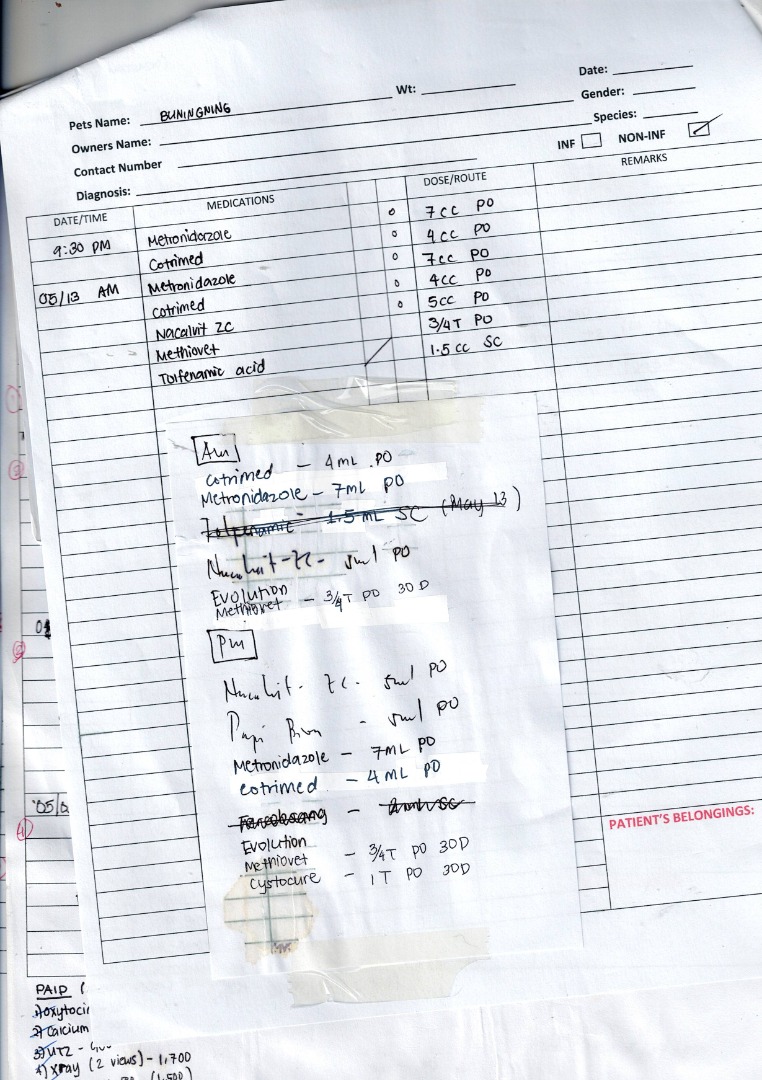 Date:
Pets Name: BUNINGNING Wt: Gender:
Owners Name: Species:
Contact Number INF NON-INF
Diagnosis:
DATE/TIME MEDICATIONS DOSE/ROUTE REMARKS
9:30 PM Metronidazole 7cc PO
Cotrimed 4cc PO
05/13 AM Metronidazole 7cc PO
cotrimed 4cc PO
Nacalvit ZC 5cc PO
Methiovet 3/4T PO
Tolfenamic acid 1.5 cc SC
AM
Cotrimed - 4mL PO
Metronidazole - 7mL PO
Tolfenamic - 1.5 mL SC (May 13)
Nacalvit-ZC - 5ml PO
Evolution
Methiovet - 3/4T PO 30D
PM
Nacalvit - ZC - 5ml PO
Papi - 5ml PO
Metronidazole - 7ML PO
cotrimed - 4ML PO
Evolution
Methiovet - 3/4T PO 30D
Cystocure - 1T PO 30D
PATIENT'S BELONGINGS:
PAID (
1) Oxytocin
2) Calcium
3) UTZ -
4) xray (2 views) - 1,700
(1,500)